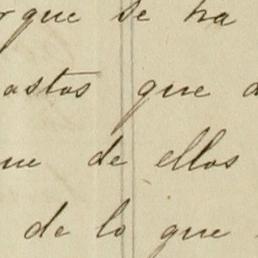 rque se ha
astos que
ue de ellos
de lo que